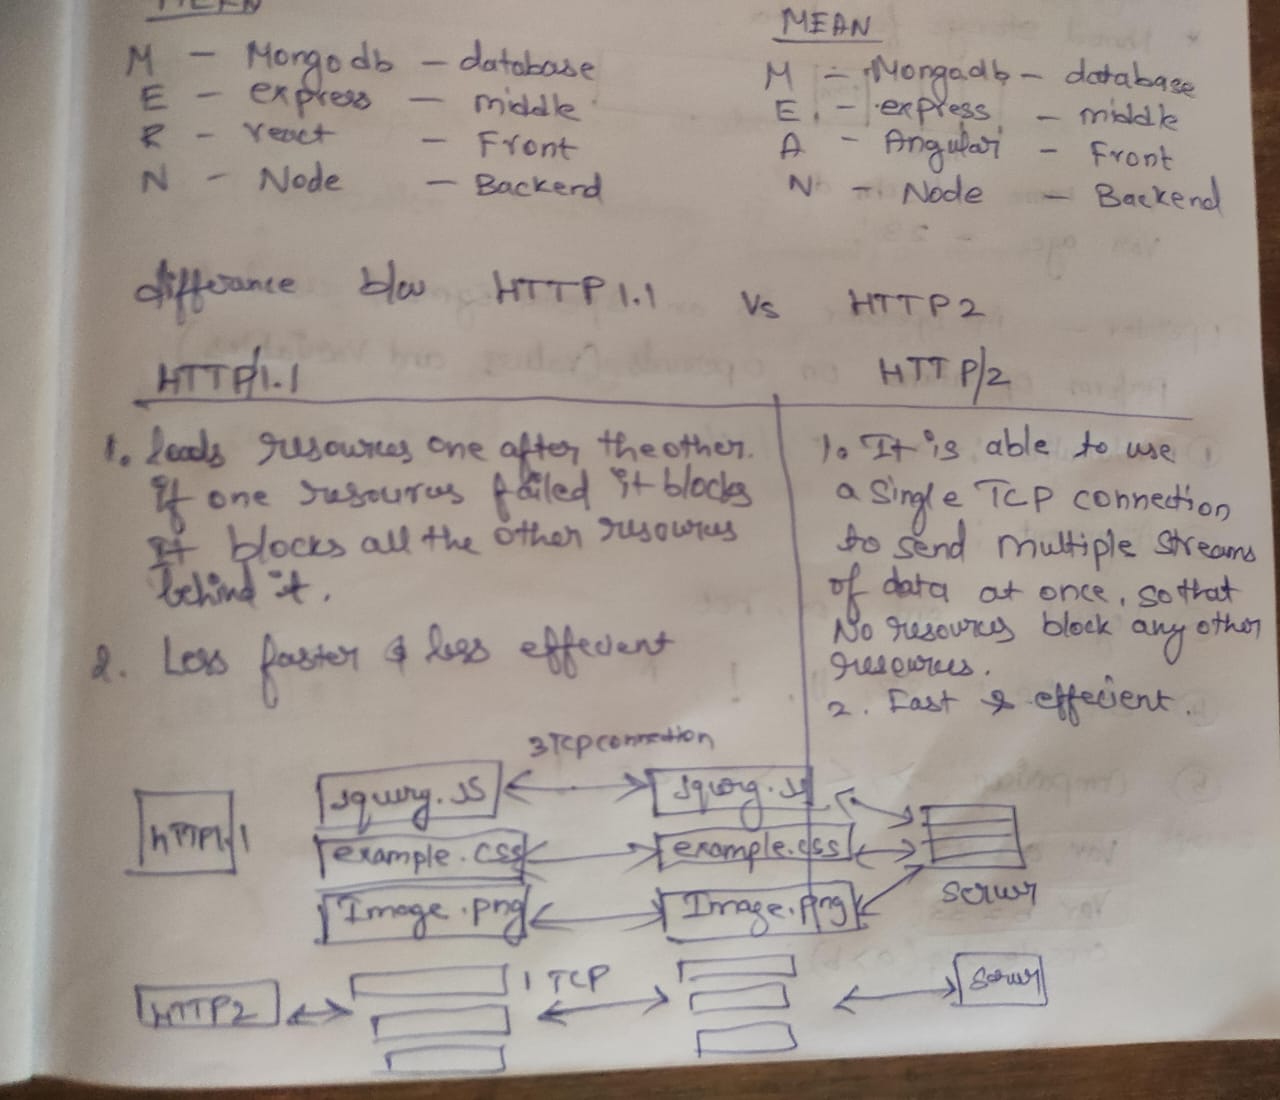 MERN
M - Mongodb - database
E - express - middle
R - react - Front
N - Node - Backend
MEAN
M - Mongodb - database
E - express - middle
A - Angular - Front
N - Node - Backend
differance b/w HTTP 1.1 Vs HTTP 2
HTTP/1.1
1. loads resources one after the other.
If one resources failed it blocks
It blocks all the other resources
behind it.
2. Less faster & less effecient
HTTP/2
1. It is able to use
a Single TCP connection
to send multiple streams
of data at once, so that
No resources block any other
resources.
2. Fast & effecient.
3 TCP connection
HTTP1.1
jquery.JS
jquery.js
example.css
example.css
Image.png
Image.png
Server
HTTP2
1 TCP
Server